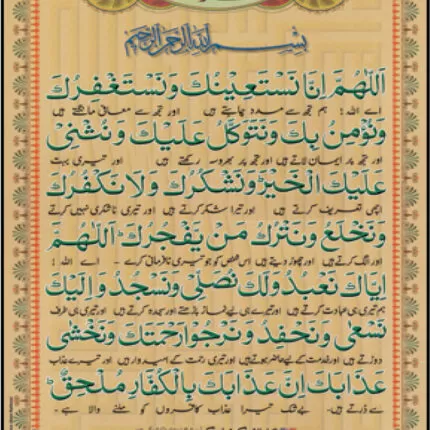 بسم الله الرحمن الرحيم
اَللّٰهُمَّ اِنَّا نَسْتَعِيْنُكَ وَنَسْتَغْفِرُكَ
اے اللہ! ہم تجھ سے مدد چاہتے ہیں اور تجھ سے معافی مانگتے ہیں
وَنُؤْمِنُ بِكَ وَنَتَوَكَّلُ عَلَيْكَ وَنُثْنِيْ
اور تجھ پر ایمان لاتے ہیں اور تجھ پر بھروسہ رکھتے ہیں اور تیری بہت
عَلَيْكَ الْخَيْرَ وَنَشْكُرُكَ وَلَا نَكْفُرُكَ
اچھی تعریف کرتے ہیں اور تیرا شکر کرتے ہیں اور تیری ناشکری نہیں کرتے
وَنَخْلَعُ وَنَتْرُكُ مَنْ يَّفْجُرُكَ اَللّٰهُمَّ
اور الگ کرتے ہیں اور چھوڑ دیتے ہیں اس شخص کو جو تیری نافرمانی کرے ۔ اے اللہ !
اِيَّاكَ نَعْبُدُ وَلَكَ نُصَلِّيْ وَنَسْجُدُ وَاِلَيْكَ
ہم تیری ہی عبادت کرتے ہیں اور تیرے ہی لیے نماز پڑھتے ہیں اور سجدہ کرتے ہیں اور تیری ہی طرف
نَسْعٰى وَنَحْفِدُ وَنَرْجُوْا رَحْمَتَكَ وَنَخْشٰى
دوڑتے ہیں اور خدمت کے لیے حاضر ہوتے ہیں اور تیری رحمت کے امیدوار ہیں اور تیرے عذاب
عَذَابَكَ اِنَّ عَذَابَكَ بِالْكُفَّارِ مُلْحِقٌ ؕ
سے ڈرتے ہیں۔ بے شک تیرا عذاب کافروں کو ملنے والا ہے ۔